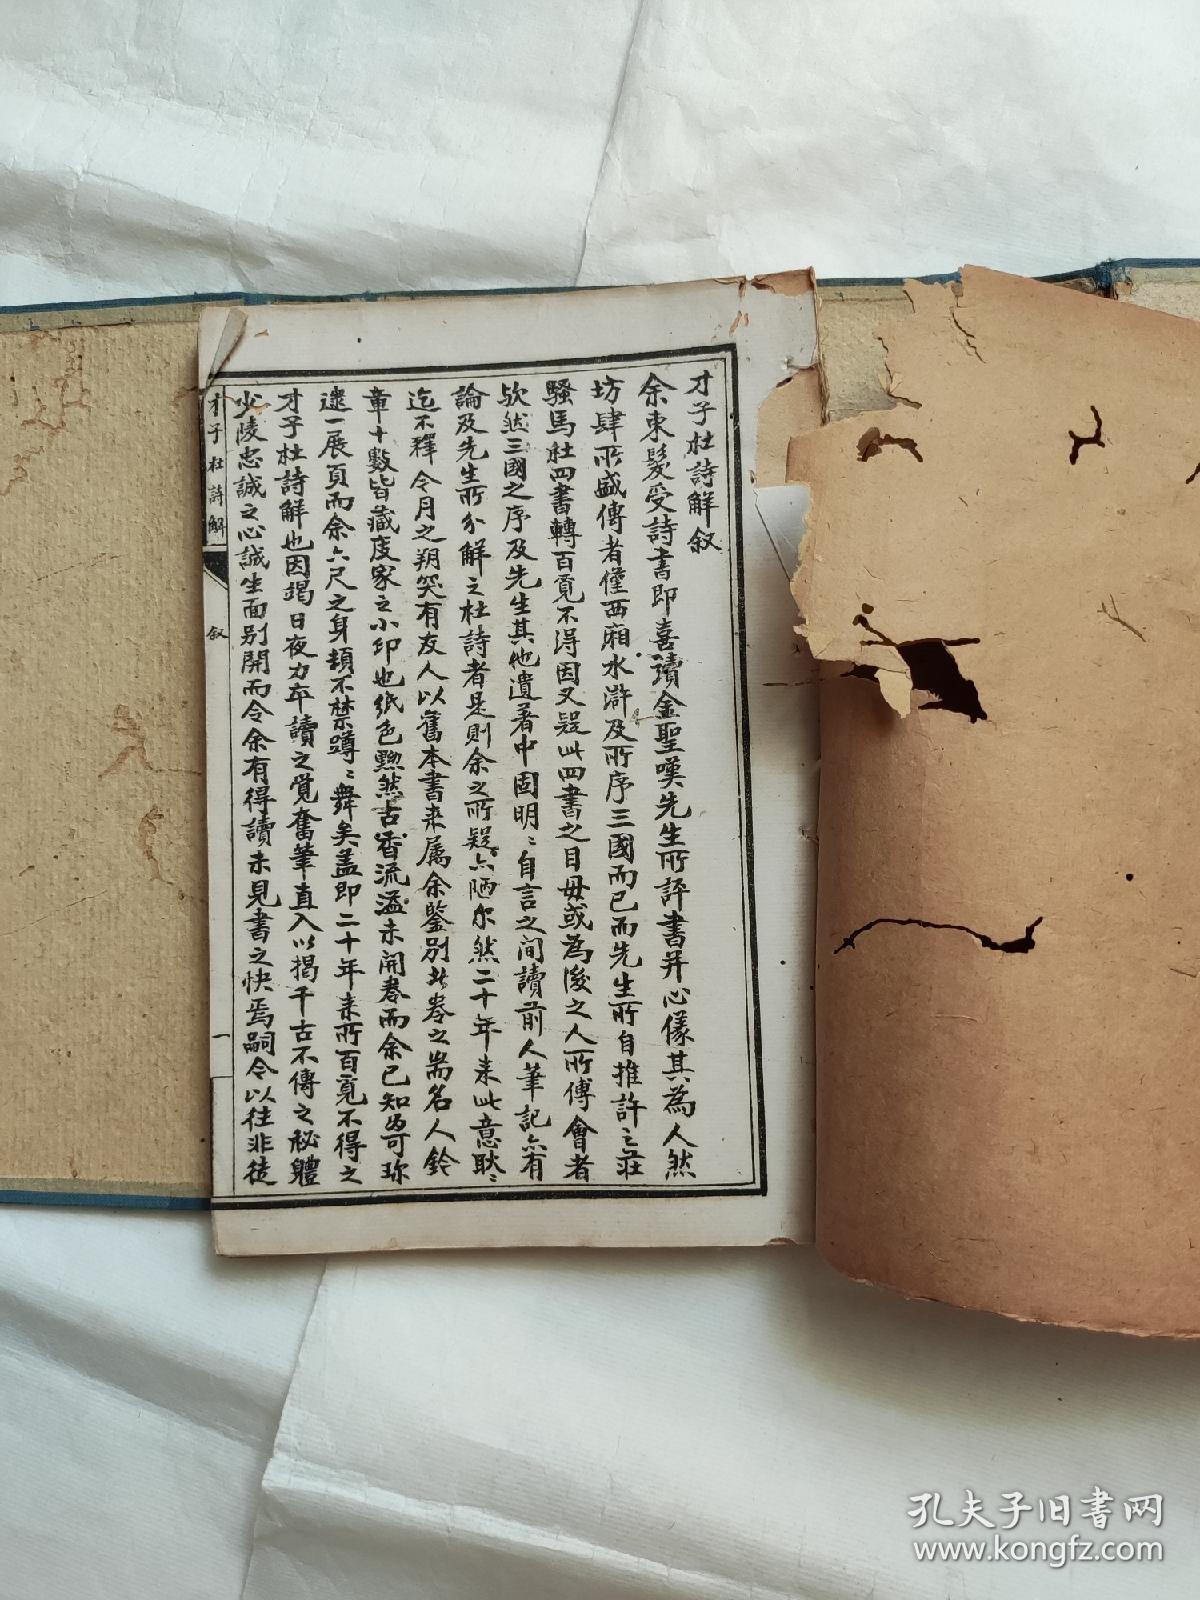 才子杜詩解叙
余束髮受詩書即喜讀金聖嘆先生所評書并心儀其為人然
坊肆所盛傳者僅西廂水滸及所序三國而已而先生所自推許之莊
騷馬杜四書轉百覓不得因又疑此四書之目毋或為後之人所傅會者
欤然三國之序及先生其他遺著中固明〻自言之間讀前人筆記亦有
論及先生所分解之杜詩者是則余之所疑亦陋尔然二十年来此意耿〻
迄不釋今月之朔突有友人以舊本書来属余鑒別此卷之耑名人鈐
章十數皆藏庋家之小印也纸色黝然古香流溢未開卷而余已知為可珎
逮一展頁而余六尺之身頓不禁蹲〻舞矣盖即二十年来所百覓不得之
才子杜詩解也因竭日夜力卒讀之覺奮筆直入以揭千古不傳之秘軆
少陵忠誠之心誠生面别開而令余有得讀未見書之快焉嗣今以往非徒
才子杜詩解
叙
一
孔夫子旧书网
www.kongfz.com